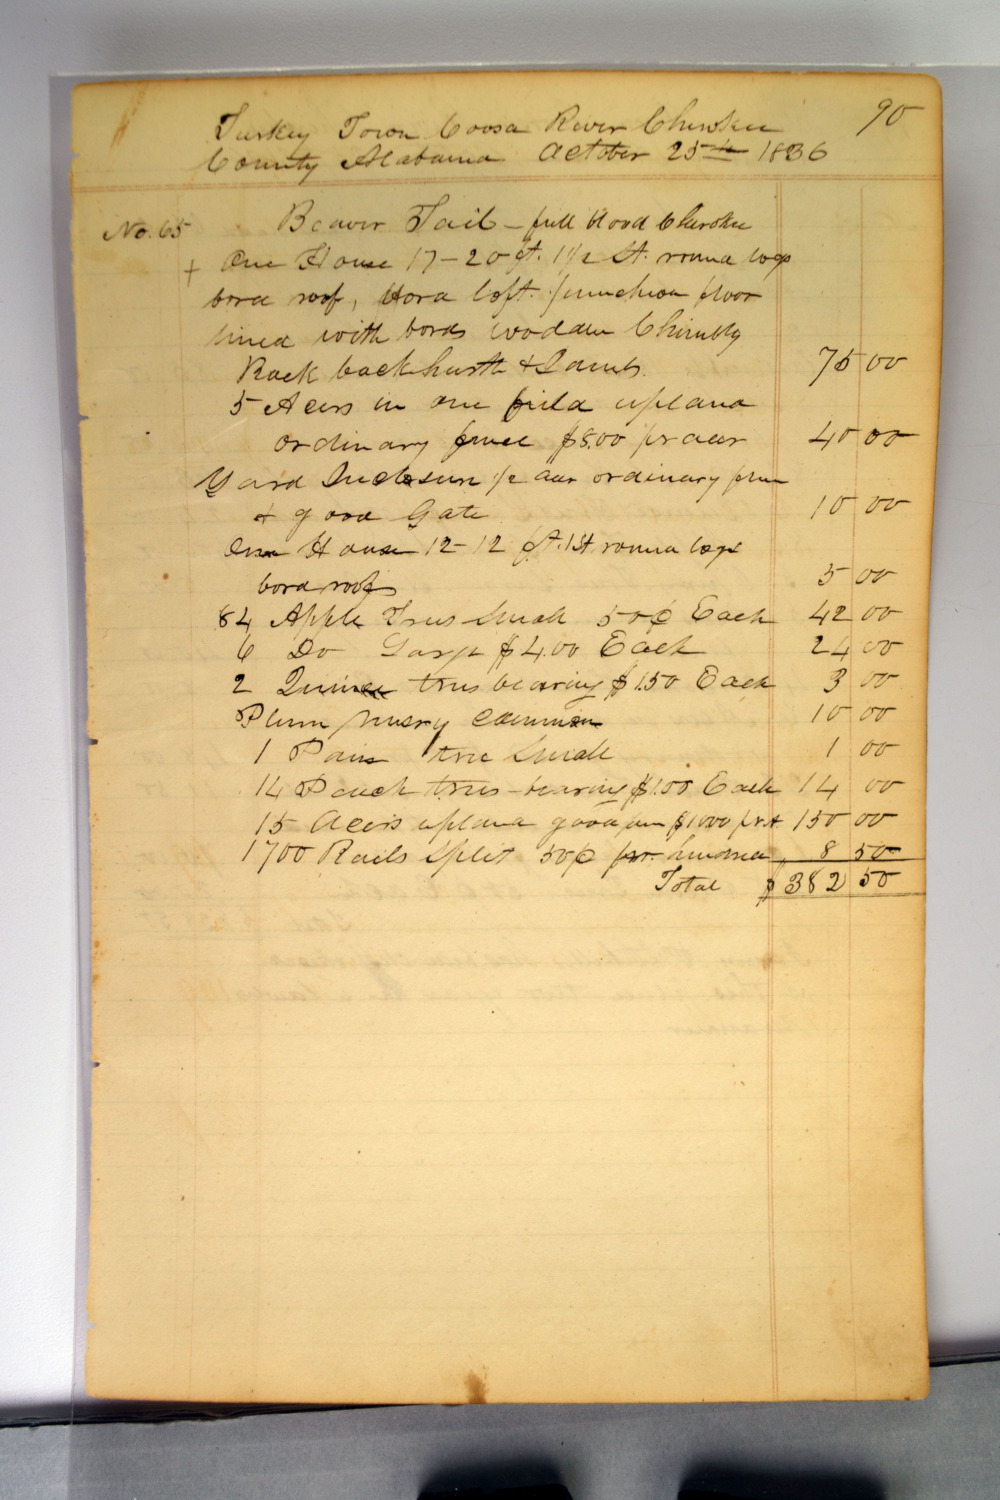 90
Turkey Town Coosa River Cherokee
County Alabama October 25th 1836
No. 65 Beaver Tail - full blood Cherokee
+ One House 17-20 ft. 1 1/2 St. round logs
bord roof, bord loft. puncheon floor
lined with bords wooden Chimbly
Rock back hearth & Jambs. 75 00
5 Acers in one field upland
ordinary fence $8.00 pr acer 40 00
Yard Inclosure 1/2 acer ordinary fence
& good Gate 10 00
One House 12-12 ft. 1 St round logs
bord roof 5 00
84 Apple Trees Small 50¢ Each 42 00
6 Do Large $4.00 Each 24 00
2 Quince trees bearing $1.50 Each 3 00
Plum nusry common 10 00
1 Pair tree Small 1 00
14 Peach trees - bearing $1.00 Each 14 00
15 Acers upland good fen $10.00 pr A 150 00
1700 Rails Split 50¢ pr. hundred 8 50
Total $382 50